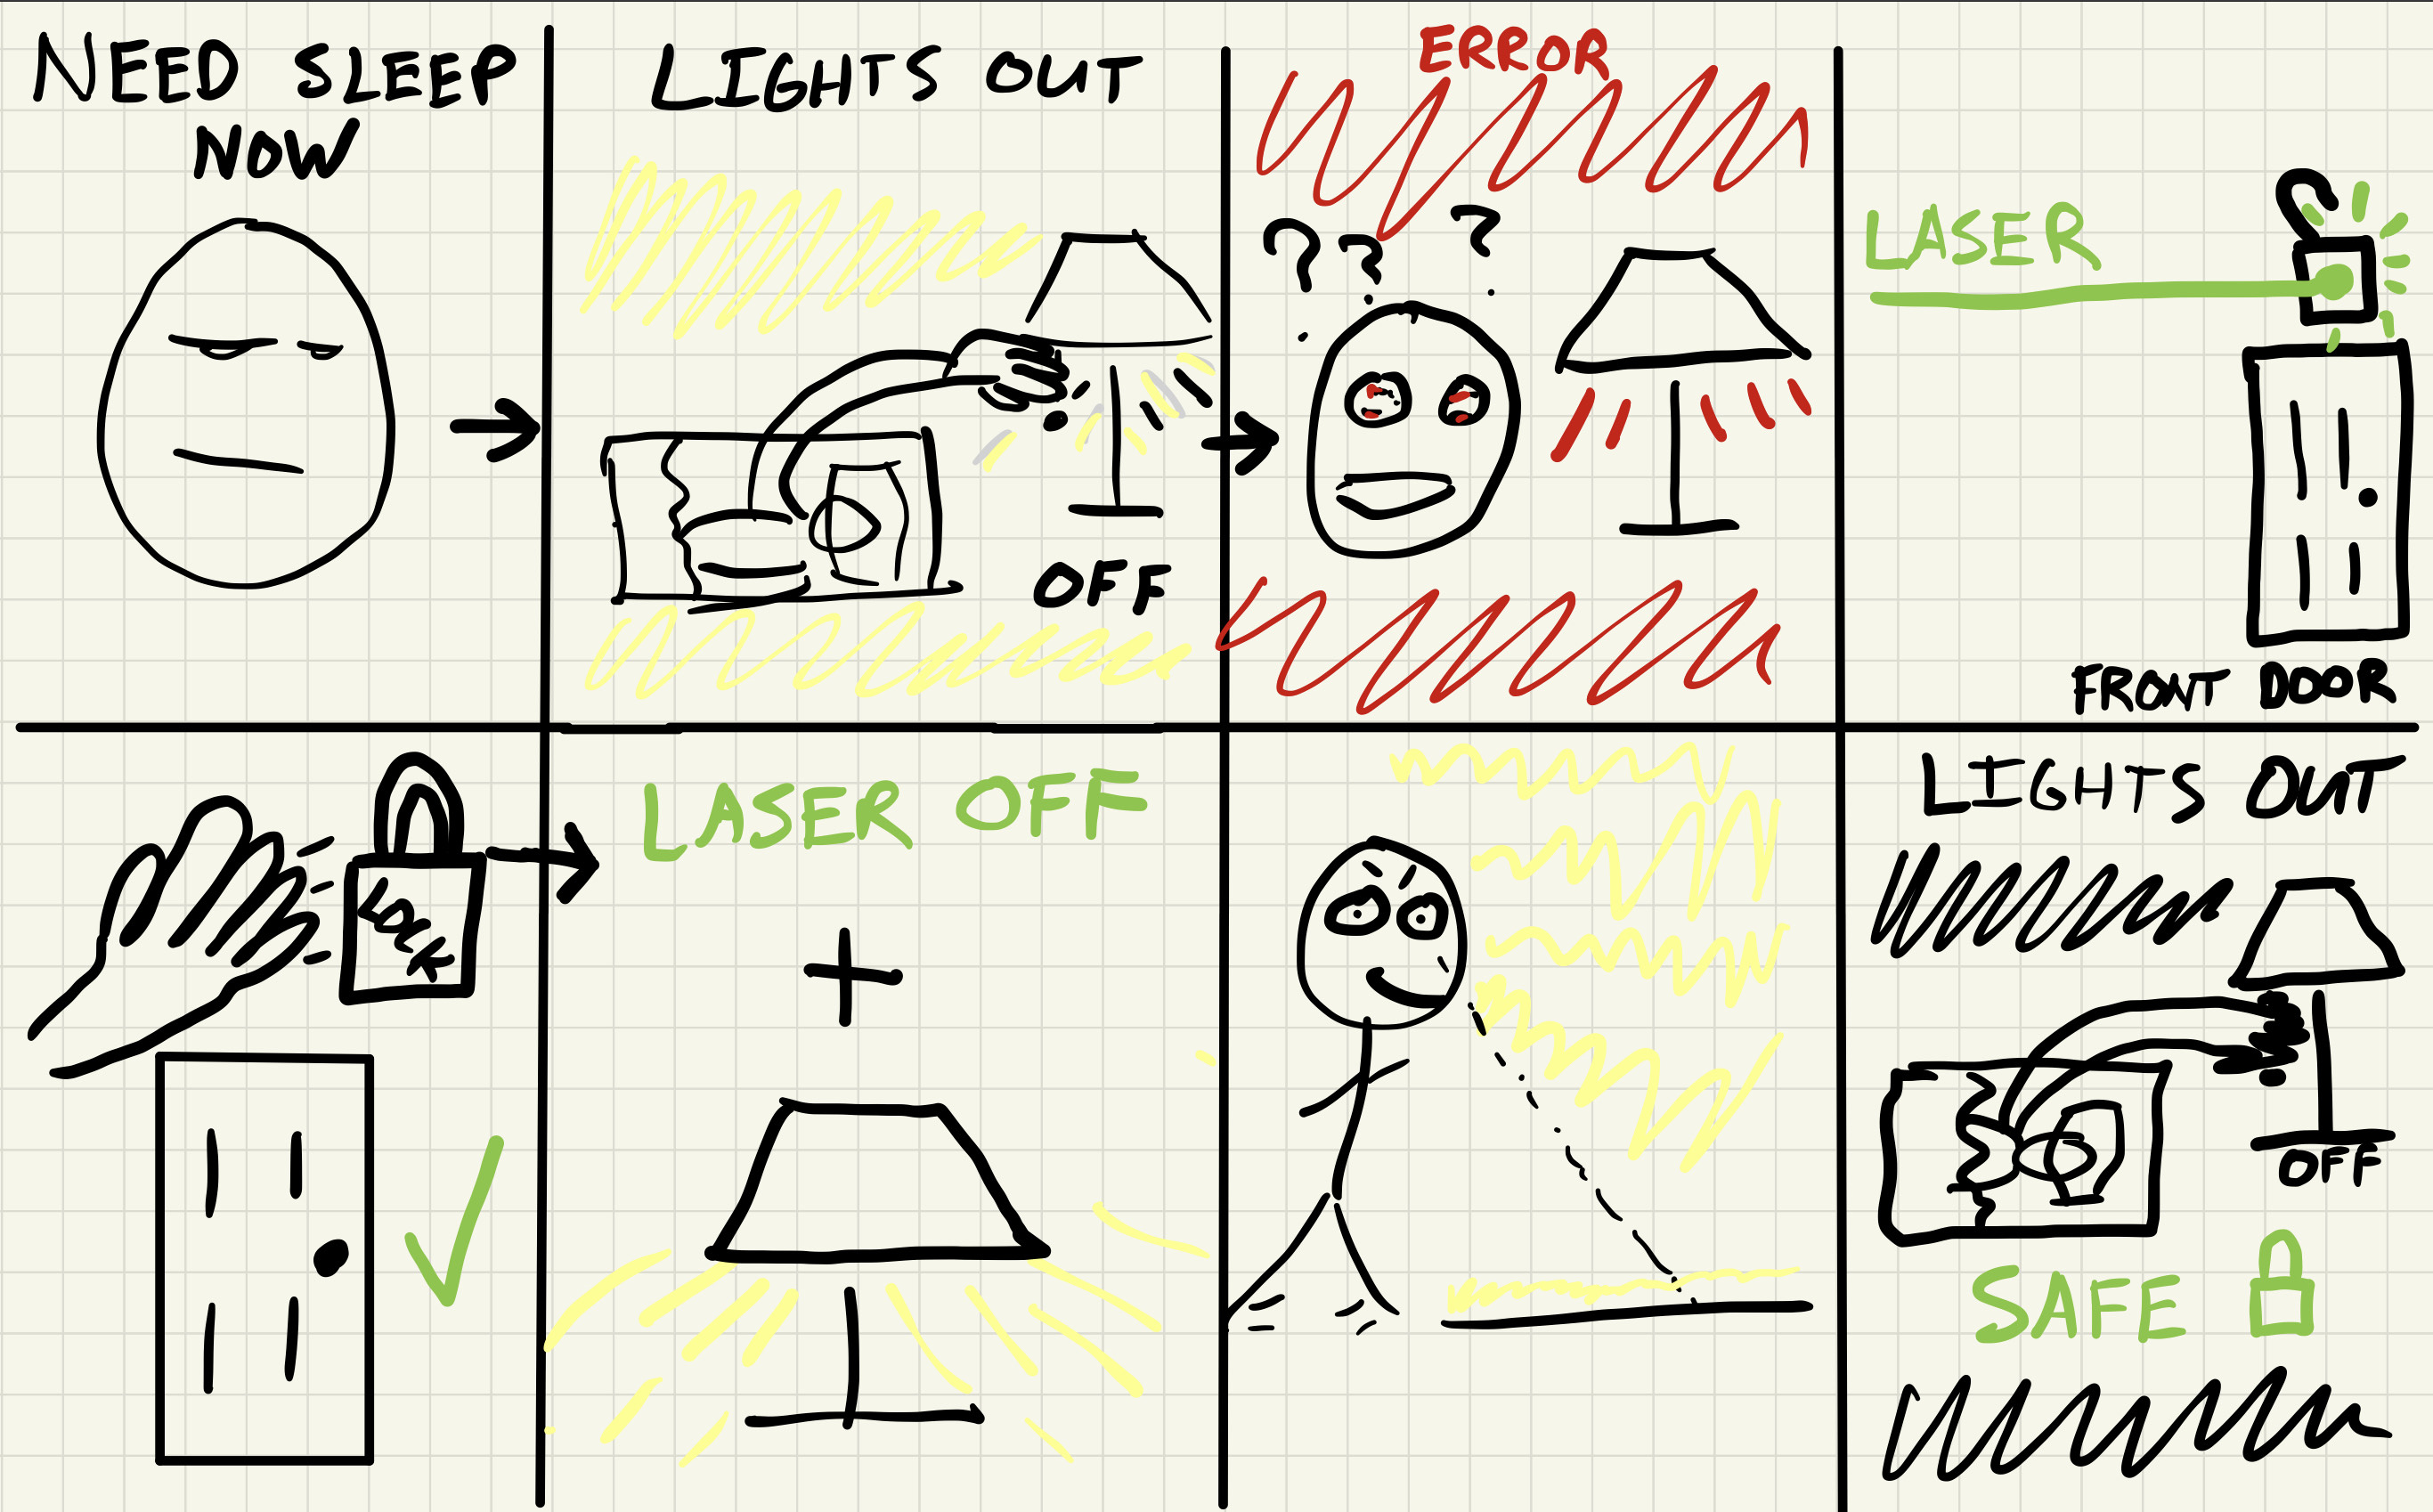 NEED SLEEP
NOW
LIGHTS OUT
OFF
ERROR
? ? ?
LASER
FRONT DOOR
LOCK
LASER OFF
+
LIGHTS OUT
OFF
SAFE